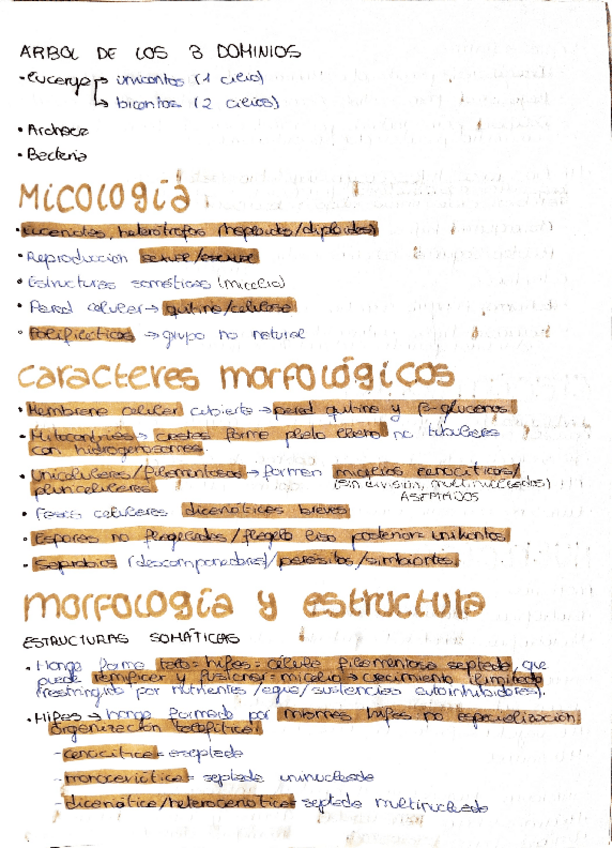 ARBOL DE LOS 3 DOMINIOS
• Eucarya → unicontos (1 cilio)
↳ bicontos (2 cilios)
• Archaea
• Bacteria
Micología
• eucariotas, heterótrofos (haploides/diploides)
• Reproducción sexual/asexual
• Estructuras somáticas (micelio)
• Pared celular → quitina/celulosa
• Polifiléticos → grupo no natural
caracteres morfológicos
• Membrana celular cubierta → pared quitina y β-glucanos
• Mitocondrias → crestas forma plato llano no tubulares
con hidrogenosomas.
• Unicelulares/filamentosos → forman micelios cenocíticos/
pluricelulares (sin división, multinucleados)
ASEPTADOS
• Fases celulares dicarióticas breves
• Esporas no flageladas/flagelo liso posterior unikontos
• Saprobios (descomponedores)/parásitos/simbiontes
morfología y estructura
ESTRUCTURAS SOMÁTICAS
• Hongo forma talo = hifas = célula filamentosa septada, que
puede ramificar y fusionar = micelio → crecimiento ilimitado
(restringido por nutrientes/agua/sustancias autoinhibidoras).
• Hifas → hongo formado por mismas hifas no especialización.
Organización talofítica:
- cenocítica = aseptada
- = septada uninucleada
- dicariótica/ septada multinucleada